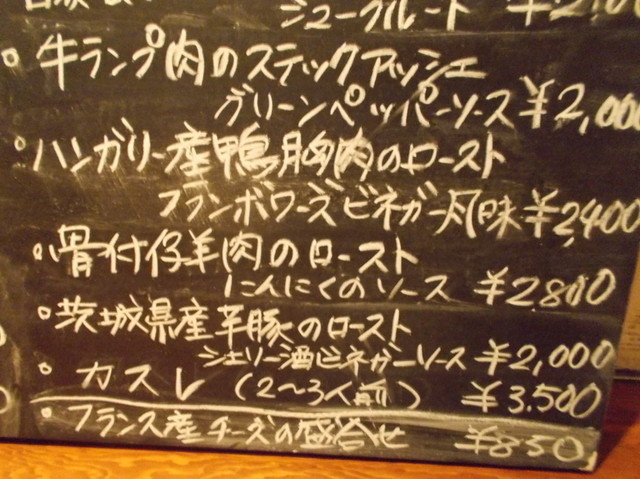 シュークルート
・牛ランプ肉のステックアッシェ
グリーンペッパーソース ¥2,000
・ハンガリー産鴨胸肉のロースト
フランボワーズビネガー風味 ¥2,400
・骨付仔羊肉のロースト
にんにくのソース ¥2800
・茨城県産芋豚のロースト
シェリー酒ビネガーソース ¥2,000
・カスレ(2〜3人前) ¥3.500
・フランス産チーズの盛合せ ¥850